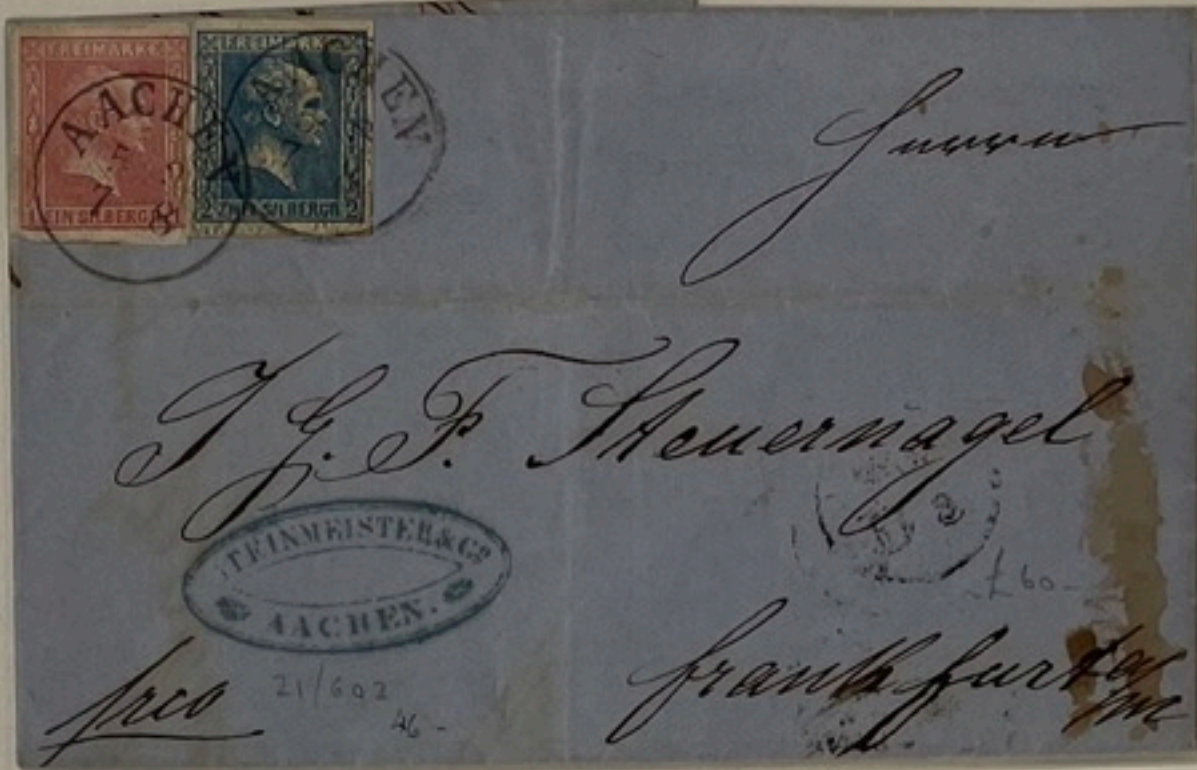 FREIMARKE
1 EIN SILBERGR 1
FREIMARKE
2 ZWEI SILBERGR 2
AACHEN
7 8
AACHEN
Herrn
J. G. F. Steuernagel
STEINMEISTER & Co
AACHEN.
£ 60-
frco
21/602
46-
Frankfurt a/m